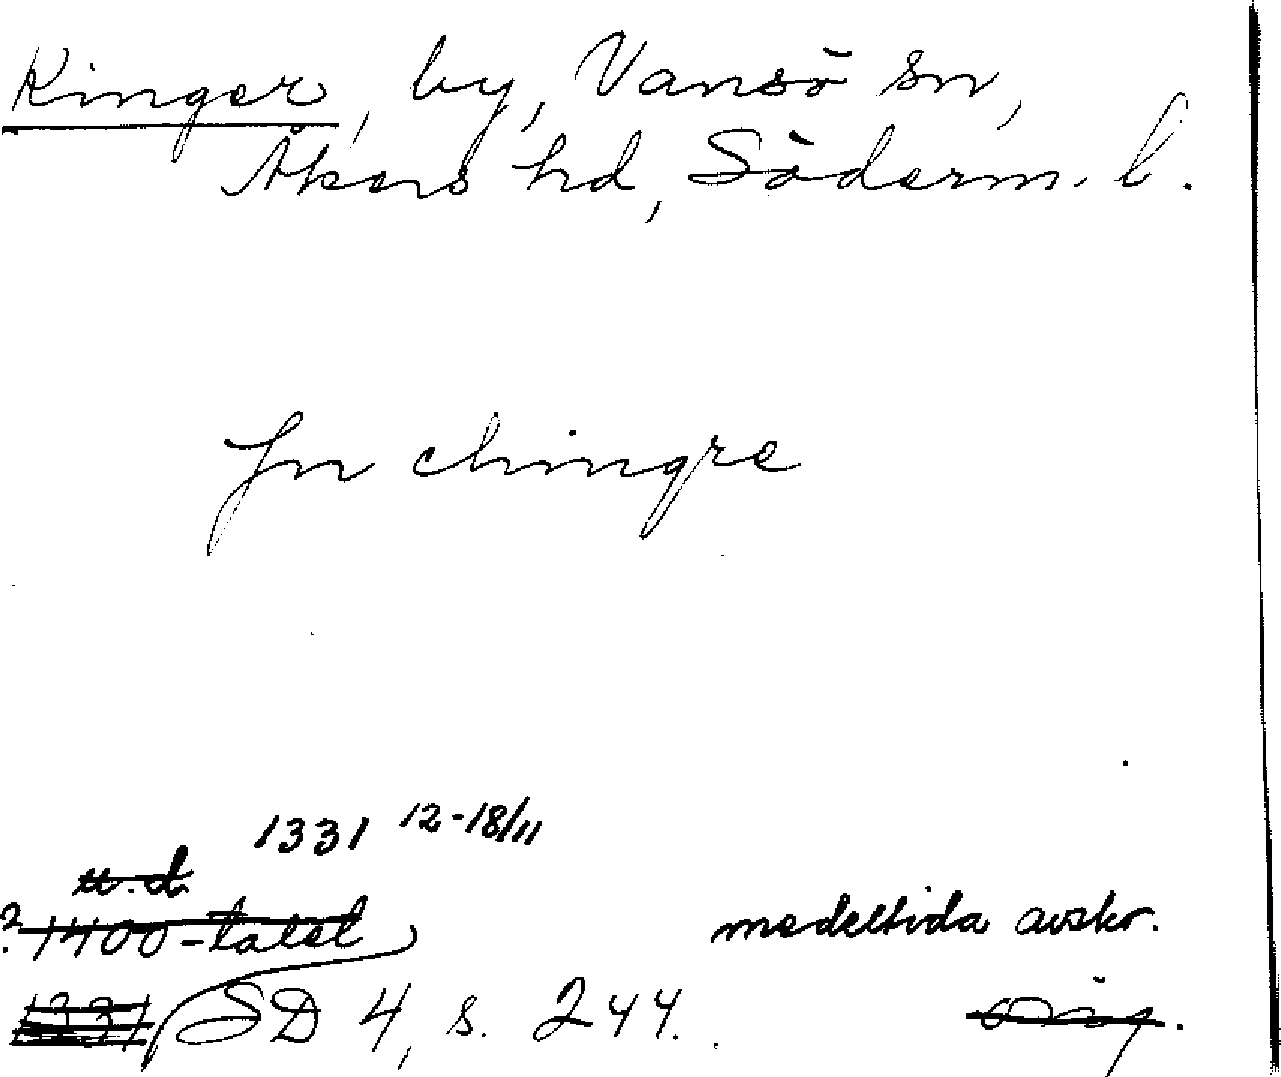 Kinger, by, Vansö sn,
Åkers hd, Söderm. l.
Jn chingre
1331 12-18/11
u.d.
? 1400-talet
1331 SD 4, s. 244.
medeltida avskr.
orig.